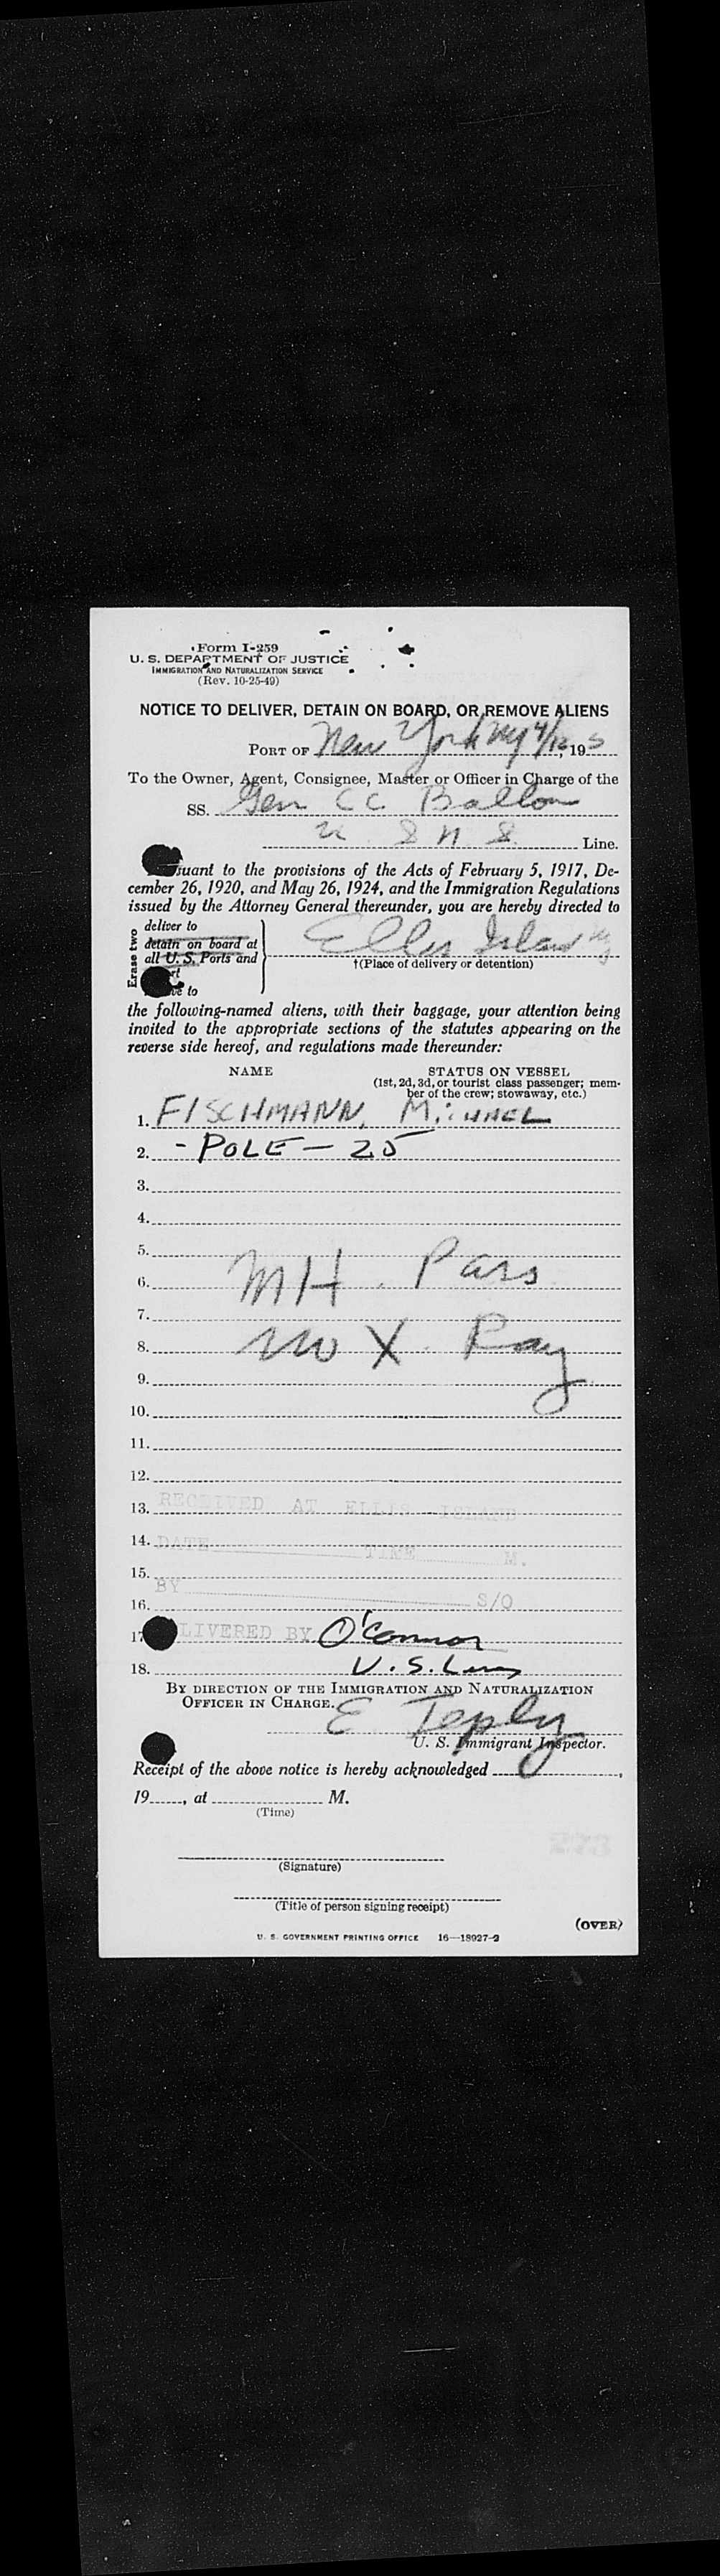 Form I-259
U. S. DEPARTMENT OF JUSTICE
IMMIGRATION AND NATURALIZATION SERVICE
(Rev. 10-25-49)
NOTICE TO DELIVER, DETAIN ON BOARD, OR REMOVE ALIENS
PORT OF New York NY 4/ , 195
To the Owner, Agent, Consignee, Master or Officer in Charge of the
SS. Gen CC Ballou
U. S N S. Line.
suant to the provisions of the Acts of February 5, 1917, De-
cember 26, 1920, and May 26, 1924, and the Immigration Regulations
issued by the Attorney General thereunder, you are hereby directed to
Erase two
deliver to
detain on board at
all U. S. Ports and
ve to
Ellis Island NY
†(Place of delivery or detention)
the following-named aliens, with their baggage, your attention being
invited to the appropriate sections of the statutes appearing on the
reverse side hereof, and regulations made thereunder:
NAME STATUS ON VESSEL
(1st, 2d, 3d, or tourist class passenger; mem-
ber of the crew; stowaway, etc.)
1. FISCHMANN, MICHAEL
2. - POLE - 25
3.
4.
5.
6. MH. Pass
7.
8. no X. Ray
9.
10.
11.
12.
13. RECEIVED AT ELLIS ISLAND
14. DATE TIME M.
15.
16. BY S/O
17 LIVERED BY O'Connor
18. U.S. Lines
BY DIRECTION OF THE IMMIGRATION AND NATURALIZATION
OFFICER IN CHARGE.
E Teply
U. S. Immigrant Inspector.
Receipt of the above notice is hereby acknowledged ,
19 , at M.
(Time)
(Signature)
(Title of person signing receipt)
(OVER)
U. S. GOVERNMENT PRINTING OFFICE 16—18927-2